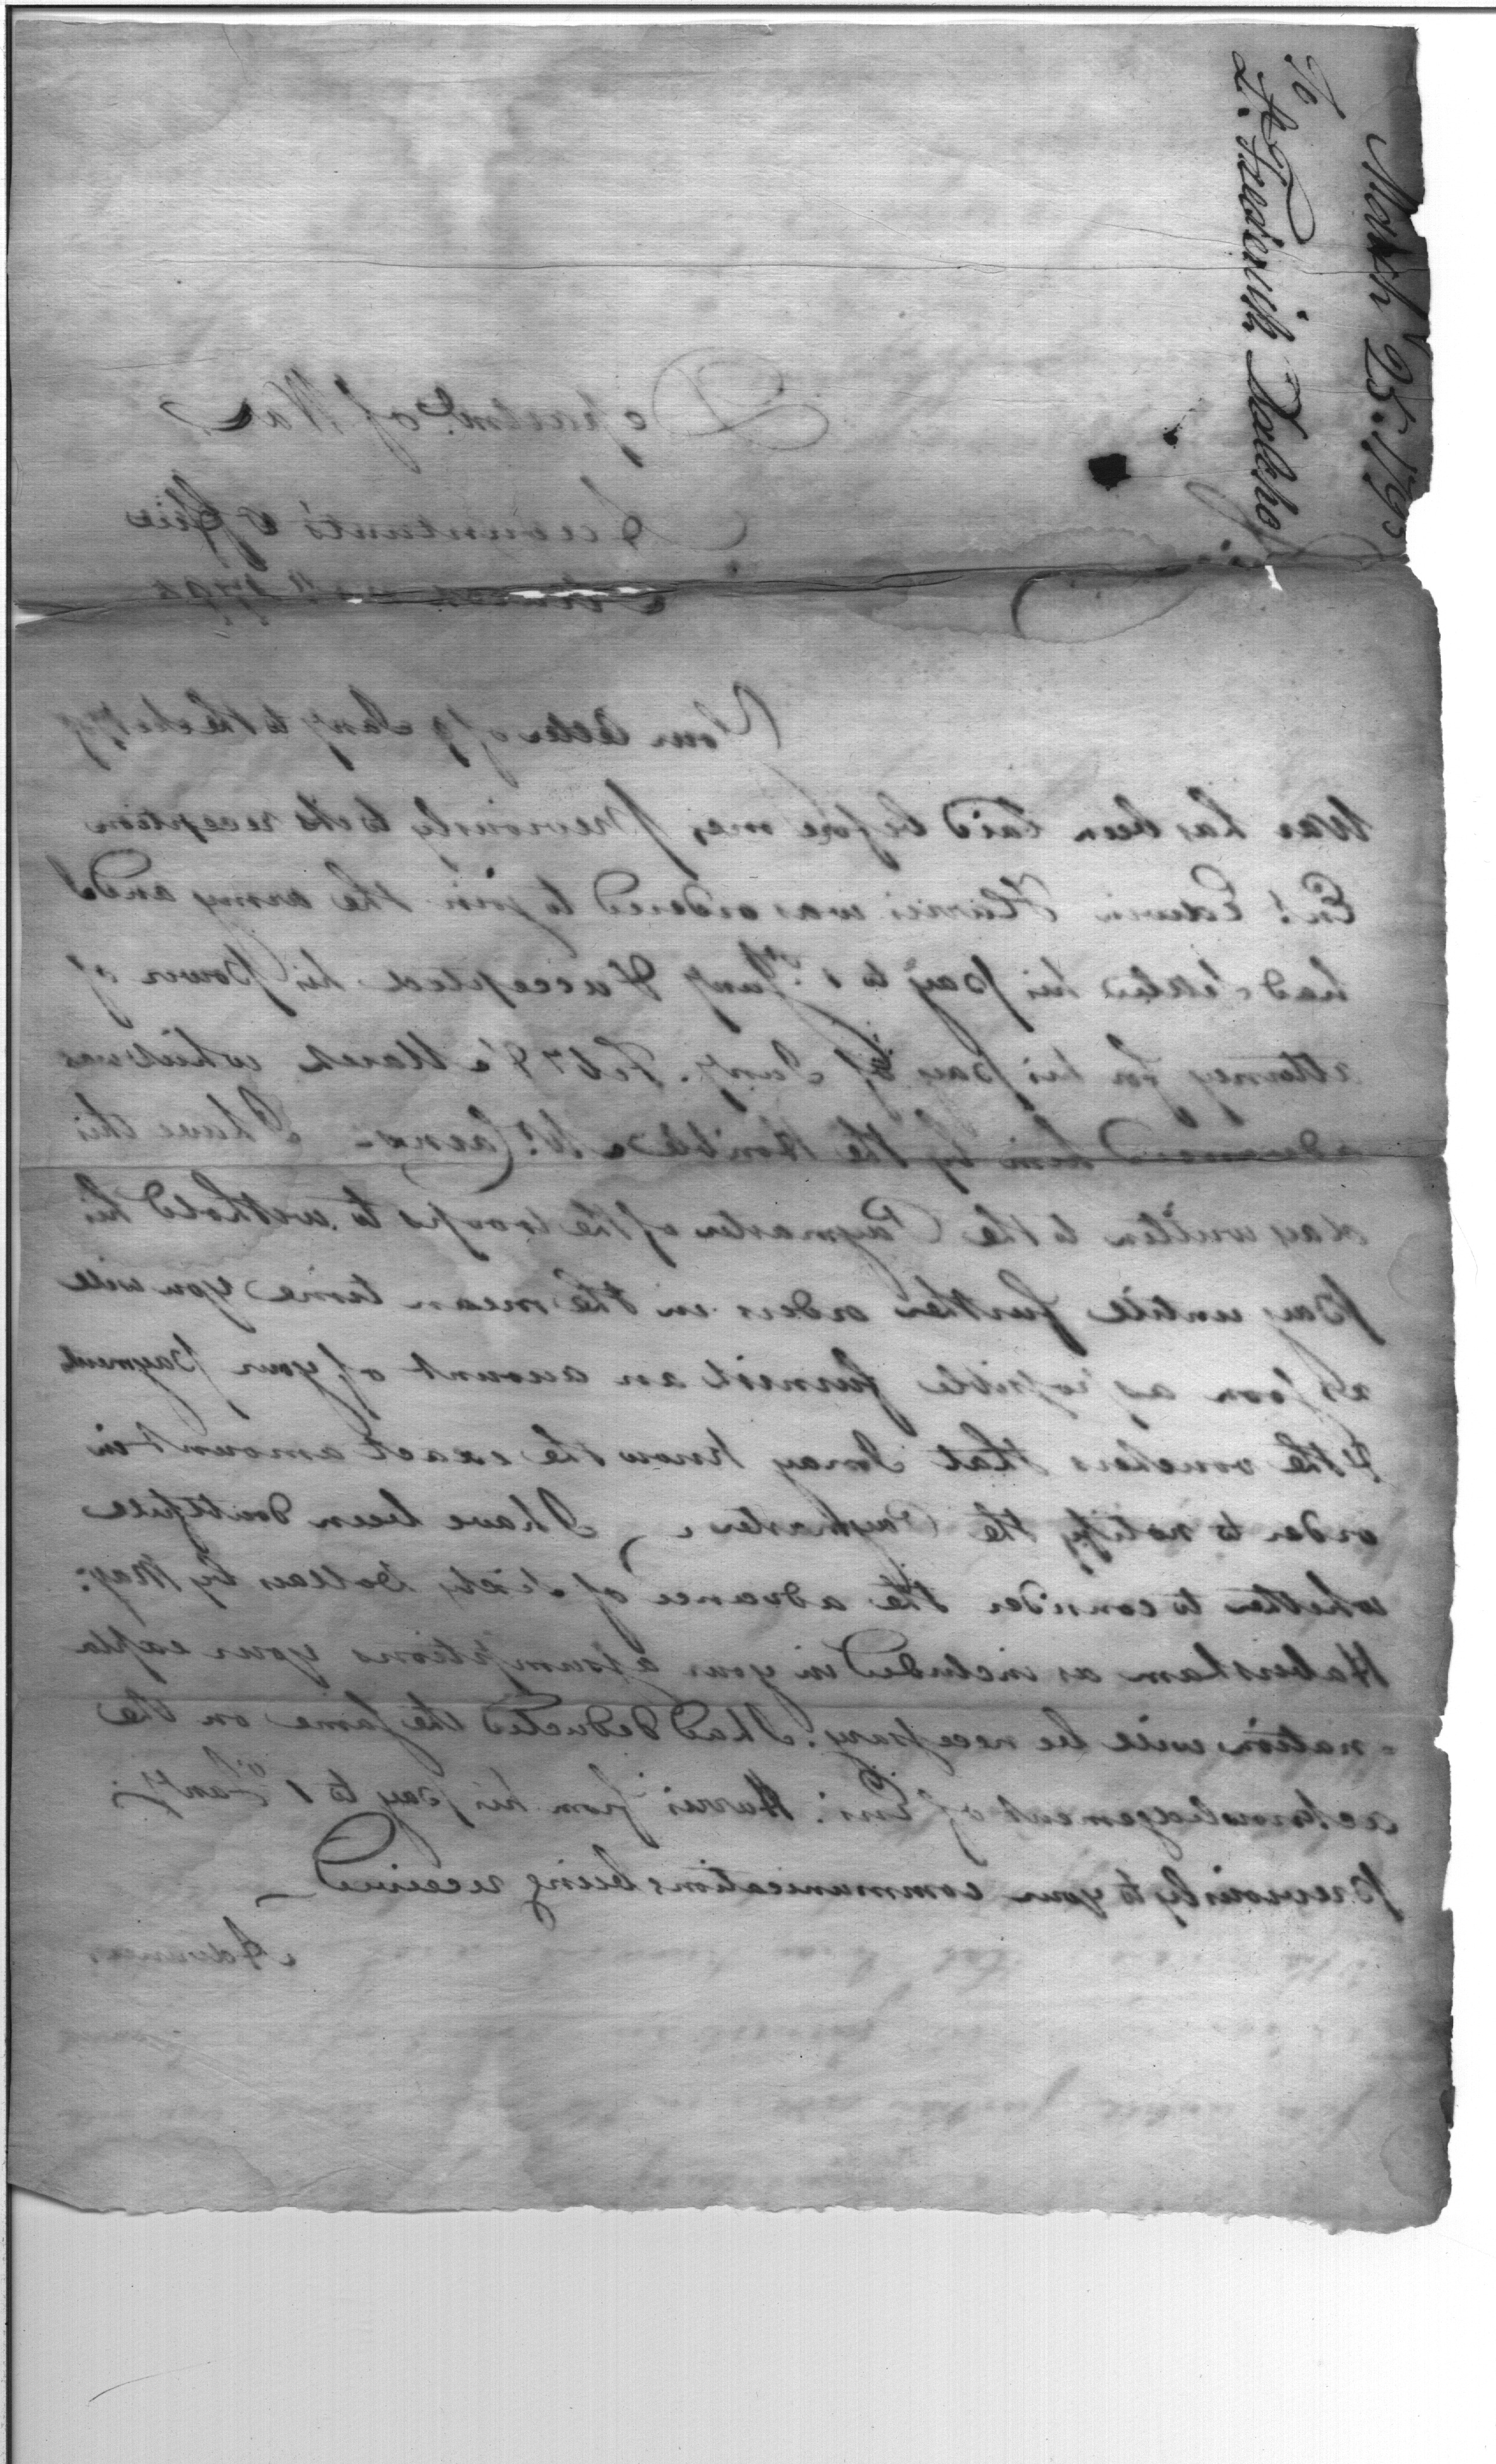 March 25. 1795
To
Lt. Frederick Dalcho
Departmt. of War
Accountant's Office
March 1795
Your letter of 9 Jany to the
War has been laid before me, previously to its reception
Ens! Edwin Harris was ordered to join the army and
had settled his pay to 1st Jany & accepted his power of
attorney for his pay of Jany. Feby & March which was
advanced him by the Honble. Mr. Carnes - I have this
day written to the Paymaster of the troops to withold his
pay untill further orders in the mean time you will
as soon as possible furnish an account of your payment
& the vouchers that I may know the exact amount in
order to notify the Paymaster. I have been doubtfull
whether to consider the advance of sixty Dollars by Maj:
Habersham as included in your assumptions your expla
-nation will be necessary. I had deducted the same on the
acknowledgement of Ens: Harris from his pay to 1st Jany
previously to your communications being received